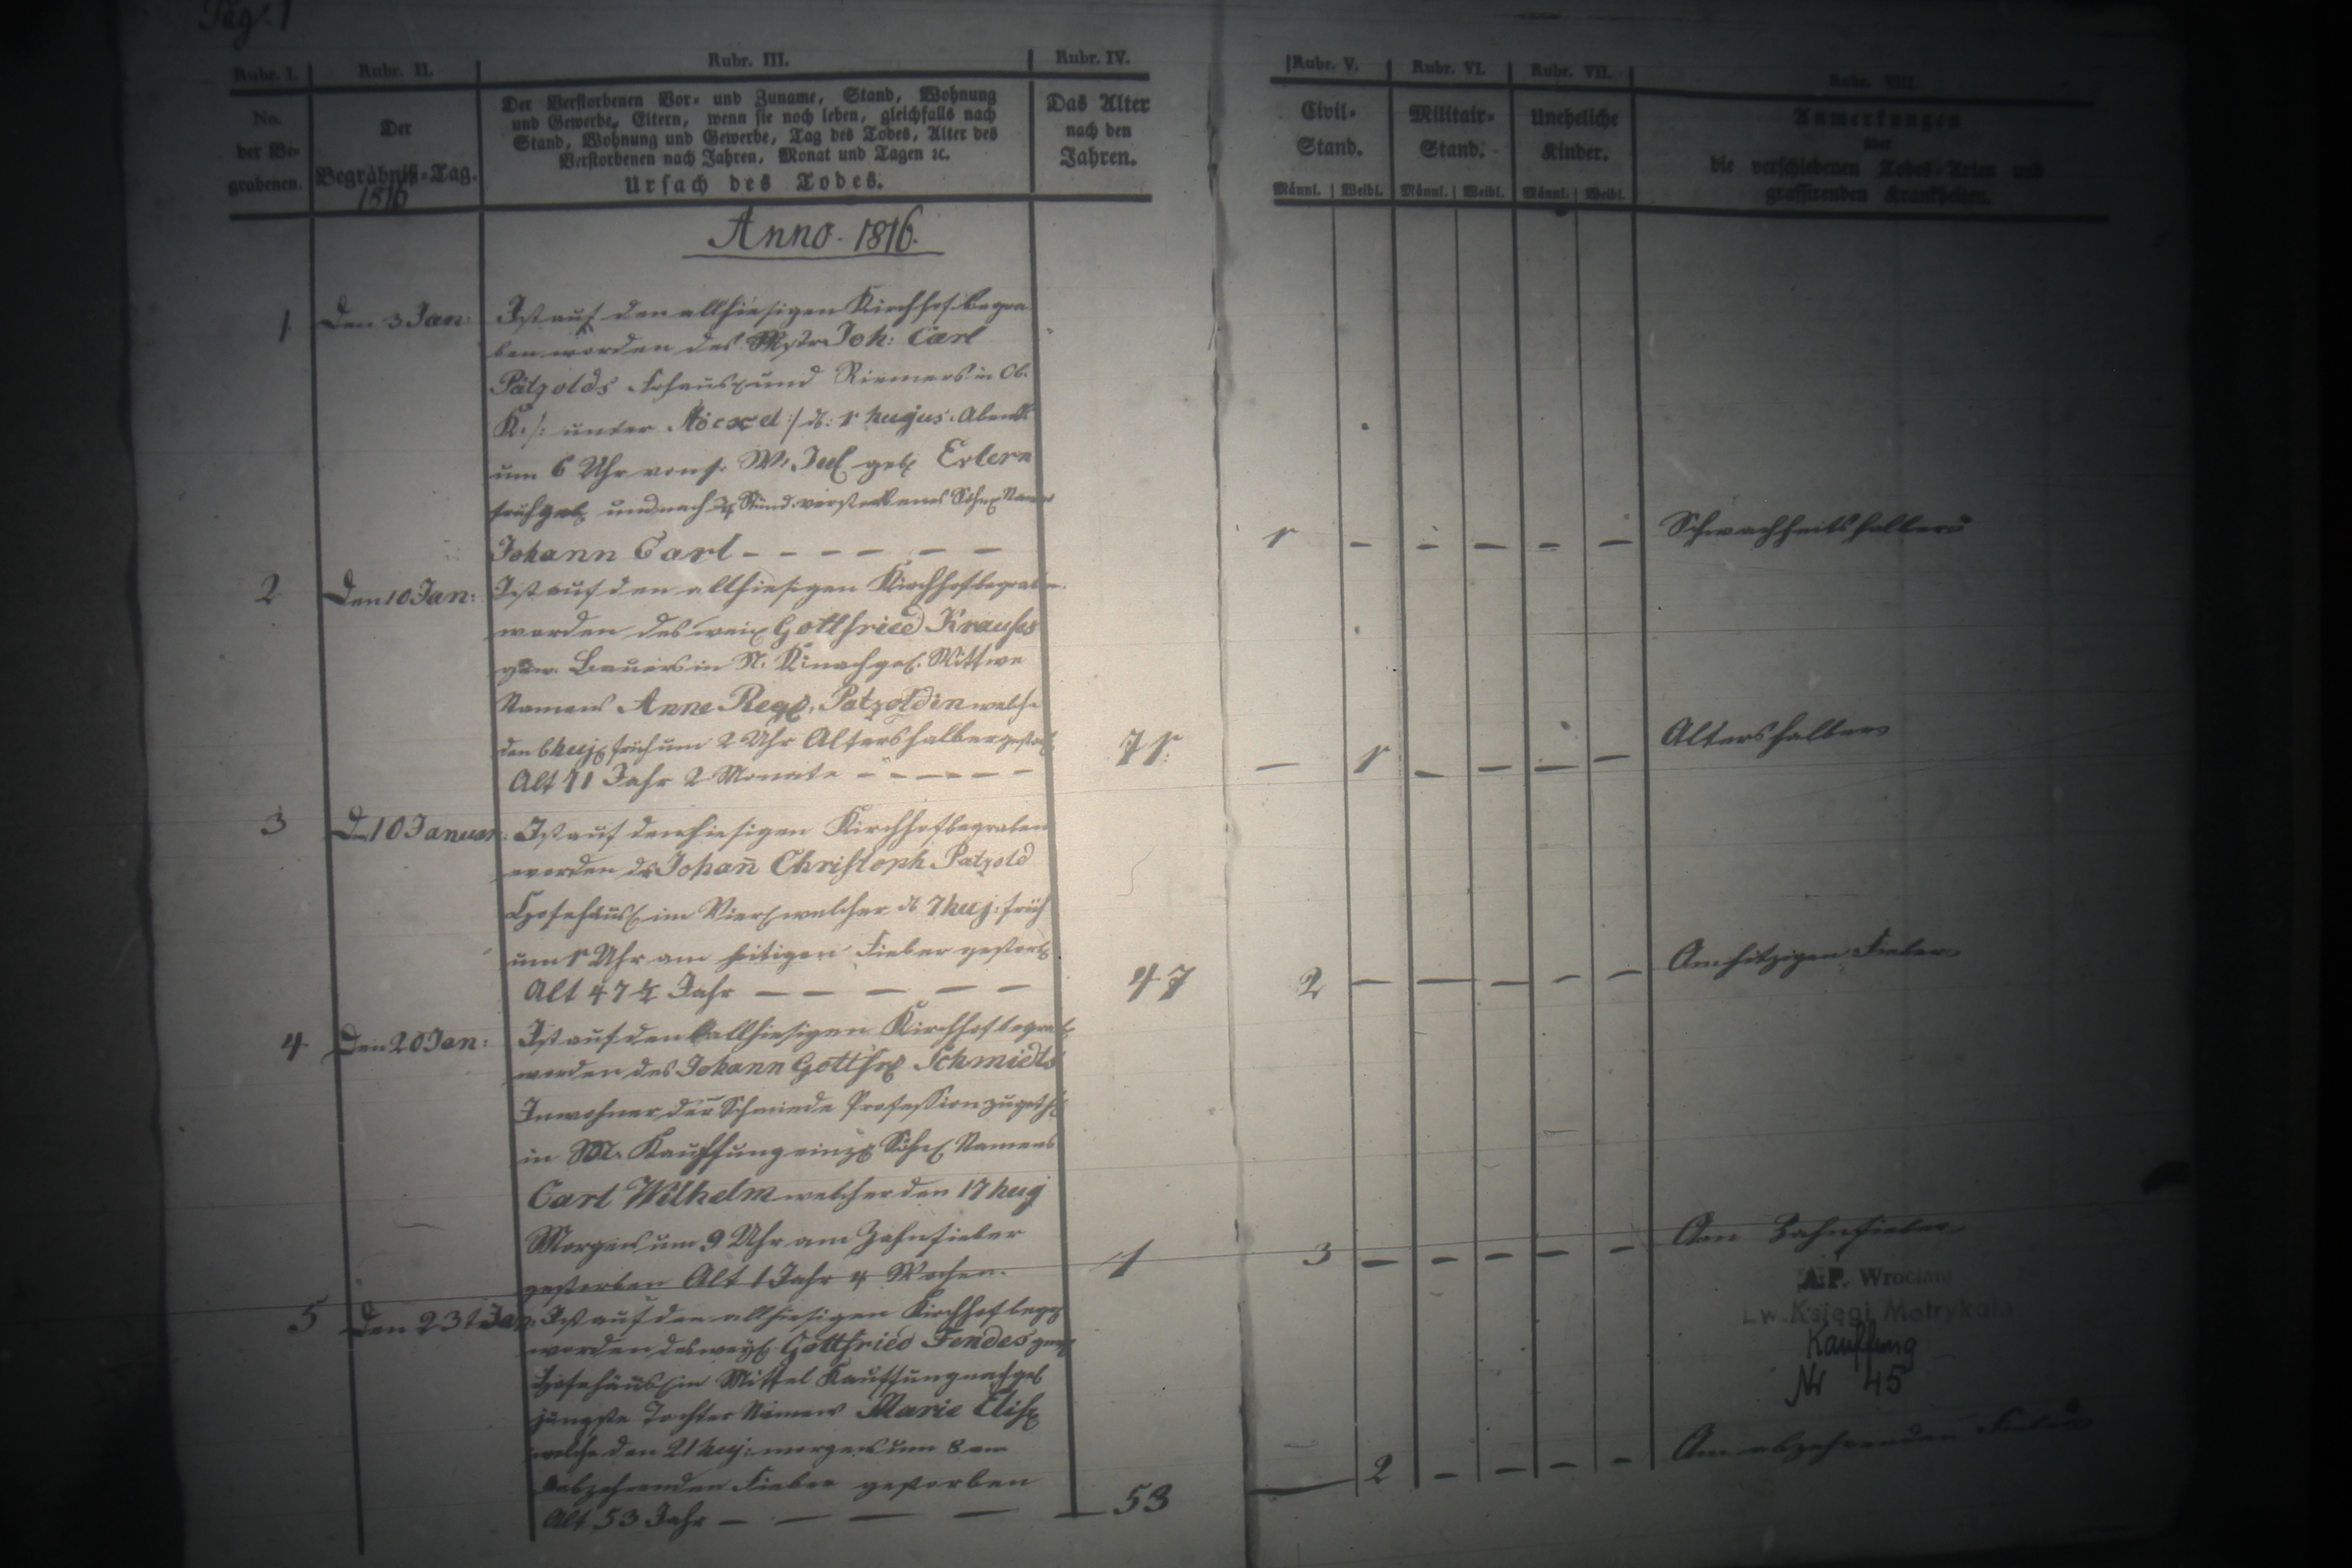 Pag. 1
Rubr. I.
Rubr. II.
Rubr. III.
Rubr. IV.
Rubr. V.
Rubr. VI.
Rubr. VII.
Rubr. VIII.
No.
der Be-
grabenen.
Der
Begräbniß-Tag.
1816
Der Verstorbenen Vor- und Zuname, Stand, Wohnung
und Gewerbe, Eltern, wenn sie noch leben, gleichfalls nach
Stand, Wohnung und Gewerbe, Tag des Todes, Alter des
Verstorbenen nach Jahren, Monat und Tagen ꝛc.
Ursach des Todes.
Das Alter
nach den
Jahren.
Civil-
Stand.
Männl. Weibl.
Militair-
Stand.
Männl. Weibl.
Uneheliche
Kinder.
Männl. Weibl.
Anmerkungen
über
die verschiedenen Todes-Arten und
grassirenden Krankheiten.
Anno 1816.
1 Den 3 Jan: Ist auf den allhiesigen Kirchhof begra
ben worden des Mstr Joh: Carl
Pätzolds und Riemers in Ob.
K. /: unter :/ d: 1 hujus Abends
um 6 Uhr von s. W. geb Exlern
früh geb und nach Stund. verstorbenes Söhn Namens
Johann Carl – – – – – – 1 – – – – – Schwachheitshalber
2 Den 10 Jan: Ist auf den allhiesigen Kirchhof begraben
worden des weil Gottfried Krauses
gew. Bauers in N. K. nachgel. Wittwe
Namens Anne Pätzoldin welche
den 6 huj früh um 2 Uhr Altershalber gestorb
Alt 71 Jahr 2 Monate – – – – – – 71. – 1 – – – – Altershalber
3 D. 10 Januar: Ist auf den hiesigen Kirchhof begraben
worden der Johañ Christoph Patzold
Hofehäusl im welcher d 7 huj: früh
um 1 Uhr am hitigen Fieber gestorb
Alt 47 ½ Jahr – – – – – 47 2 – – – – – Am hitzigen Fieber
4 Den 20 Jan: Ist auf den allhiesigen Kirchhof begrab
worden des Johann Gottfr Schmidts
Inwohner der Schmiede Profession zugeth
in M. Kauffung einzg Söhnl Namens
Carl Wilhelm welcher den 17 huj
Morgens um 9 Uhr am Zahnfieber
gestorben Alt 1 Jahr 4 Wochen. 1 3 – – – – – Am Zahnfieber
A.P. Wrocław
Lw. Księgi Metrykal.
Kauffung
Nr 45
5 Den 23t Jan. Ist auf den allhiesigen Kirchhof begr
worden des weyl Gottfried Fendes gew
Hofehäusl in Mittel Kauffung nachgel
jüngste Tochter Namens Marie Elis
welche den 21 huj: morgens um 8 am
abzehrenden Fieber gestorben
Alt 53 Jahr – – – – – 53 – 2 – – – – Am abzehrenden Fieber